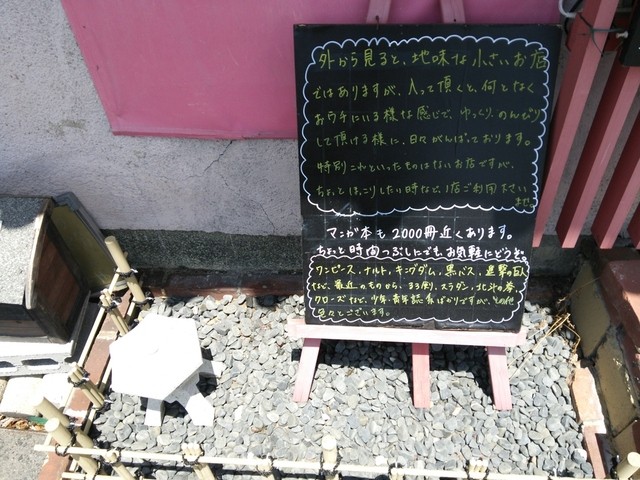 外から見ると、地味な小さいお店
ではありますが、入って頂くと、何となく
お宅にいる様な感じで、ゆっくり、のんびり
して頂ける様に、日々がんばっております。
特別これといったものはないお店ですが、
ちょっとほっこりしたい時など、1店ご利用下さい
ませ。
マンガ本も2000冊近くあります。
ちょっと時間つぶしにでも、お気軽にどうぞ。
ワンピース、ナルト、キングダム、黒バス、進撃の巨人
など、最近のものから、スラダン、北斗の拳、
クローズなど、少年、青年誌系ばかりですが、その他
色々とございます。